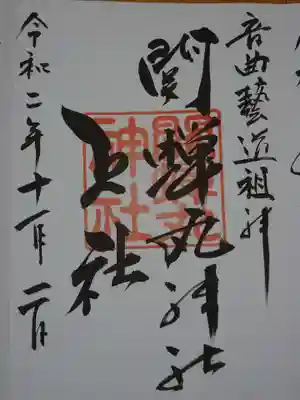 音曲藝道祖神
関蟬丸神社
上社
令和二年十一月二日
神社